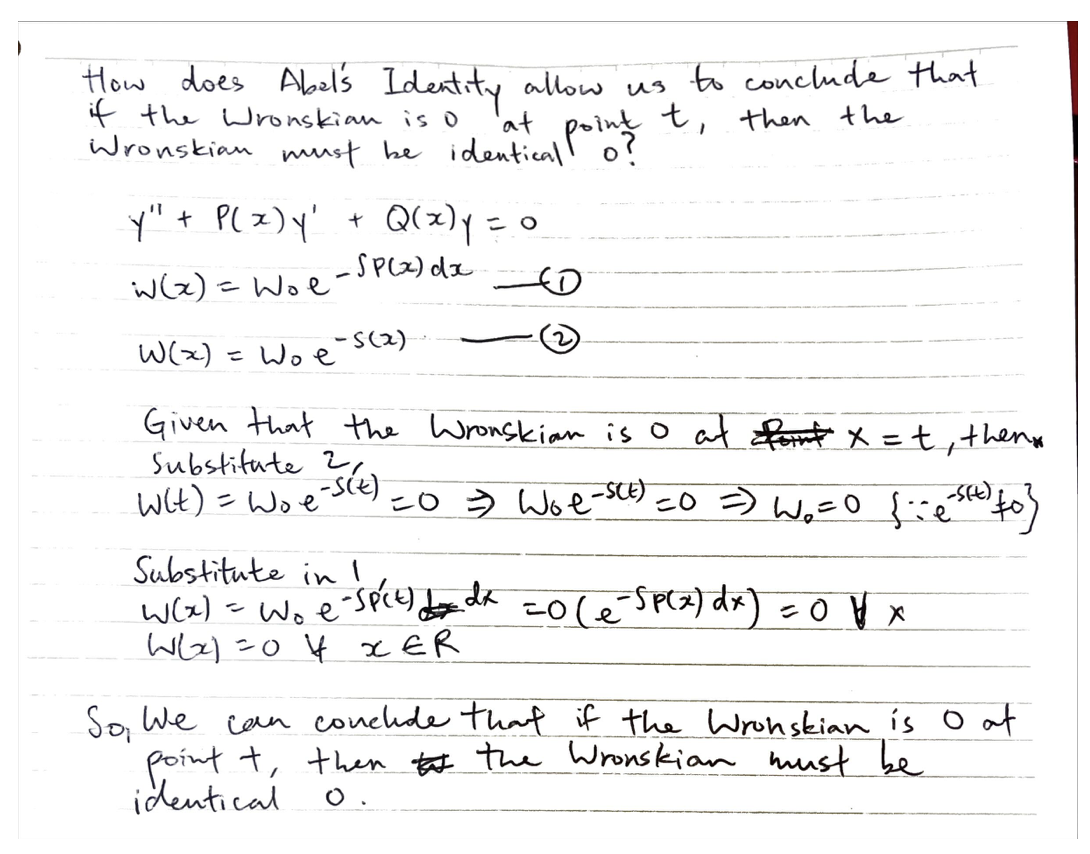 How does Abel's Identity allow us to conclude that
if the Wronskian is 0 at point t, then the
Wronskian must be identical 0?
y'' + P(x)y' + Q(x)y = 0
W(x) = W₀e^{-∫P(x)dx} —①
W(x) = W₀e^{-S(x)} —②
Given that the Wronskian is 0 at x = t, then
Substitute 2,
W(t) = W₀e^{-S(t)} = 0 ⇒ W₀e^{-S(t)} = 0 ⇒ W₀ = 0 {∵ e^{-S(t)} ≠ 0}
Substitute in 1,
W(x) = W₀e^{-∫P(t)dx} = 0(e^{-∫P(x)dx}) = 0 ∀ x
W(x) = 0 ∀ x ∈ R
So, We can conclude that if the Wronskian is 0 at
point t, then the Wronskian must be
identical 0.